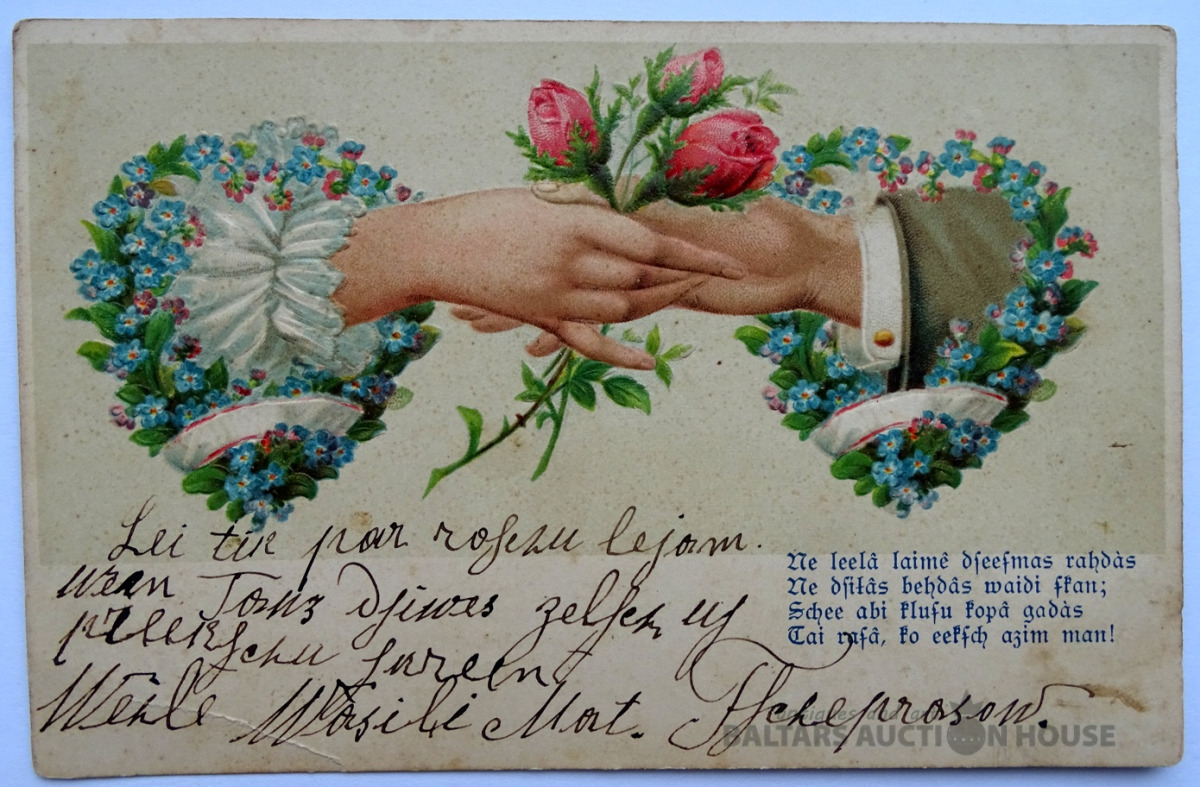 Lei tik par roſchu lejam.
ween Taws dſiwes zelſch uſ
puķekschu
Wehle Wasili Mat. Tſcheprasow.
Ne leelâ laimê dſeeſmas raḩdàs
Ne dſiłâs beḩdâs waidi ſkan;
Schee abi kluſu kopâ gadàs
Tai raſâ, ko eekſch azim man!
BALTARS AUCTION HOUSE